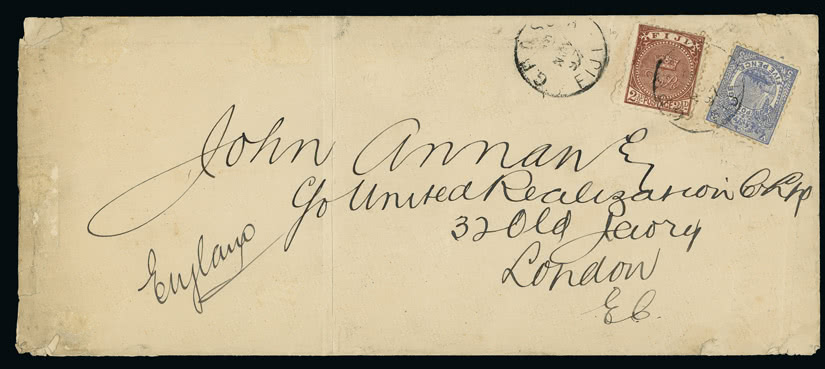 G.P.O. SUVA
FIJI
FIJI
2½d POSTAGE 2½d
FIVE PENCE
John Annan Eq
C/o United Realization Co Ltd
32 Old Jewry
London
E.C.
England